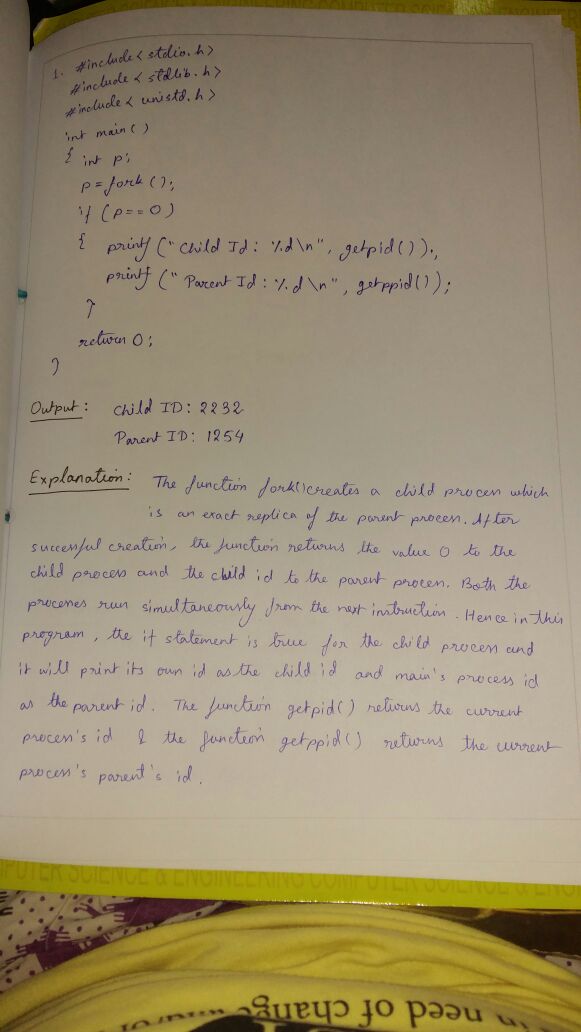 COMPUTER SCIENCE & ENGINEERING COMPUTER SCIENCE & ENGINEER
1. #include < stdio.h >
#include < stdlib.h >
#include < unistd.h >
int main()
{ int p;
p = fork ();
if (p == 0)
{ printf (" Child Id : %d\n", getpid());
printf (" Parent Id : %d\n", getppid());
}
return 0;
}
Output : Child ID: 2232
Parent ID: 1254
Explanation: The function fork() creates a child process which
is an exact replica of the parent process. After
successful creation, the function returns the value 0 to the
child process and the child id to the parent process. Both the
processes run simultaneously from the next instruction. Hence in this
program, the if statement is true for the child process and
it will print its own id as the child id and main's process id
as the parent id. The function getpid() returns the current
process's id & the function getppid() returns the current
process's parent's id.
PUTER SCIENCE & ENGINEERING COMPUTER SCIENCE & ENG
in need of change